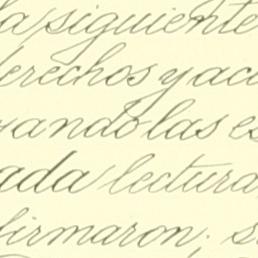 la siguiente
derechos y acc
yando las es
ada lectura
firmaron; s